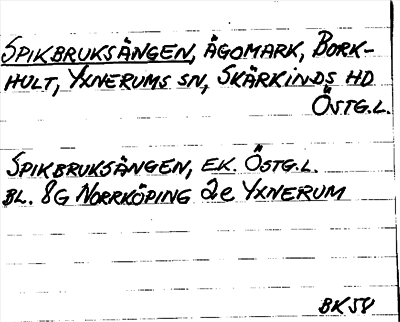 SPIKBRUKSÄNGEN, ÄGOMARK, BORK-
HULT, YXNERUMS SN, SKÄRKINDS HD
ÖSTG.L.
SPIKBRUKSÄNGEN, EK. ÖSTG.L.
BL. 8G NORRKÖPING 2e YXNERUM
BK58